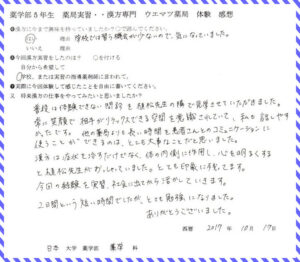 薬学部5年生 薬局実習・・漢方専門 ウエマツ薬局 体験 感想
●漢方に今まで興味を持っていましたか?○で囲んでください。
はい 理由 学校では習う機会が少なかったので、気になっていました。
いいえ 理由
●今回漢方実習をしたのは? ○を付ける
自分から希望して
学校、または実習の指導薬剤師に言われて。
●実際に今回体験して感じたことを自由にお書きください。
又 将来漢方の仕事をやってみたいと思いましたか?
普段は体験できない問診を植松先生の横で見学させていただきました。
常に笑顔で相手がリラックスできる空間を意識されていて、私も話しやす
かったです。他の薬局よりも長い時間を患者さんとのコミュニケーションに
使うことができるのは、とても大事なことだと思いました。
漢方は症状を治すだけでなく、体の内側に作用し、心を明るくする
と植松先生がおっしゃっていました。とても印象に残ってます。
今回の経験を実習、社会に出てから活かしていきます。
2日間という短い時間でしたが、とても勉強になりました。
ありがとうございました。
西暦 2017年 10月 19日
日本 大学 薬学部 薬学 科